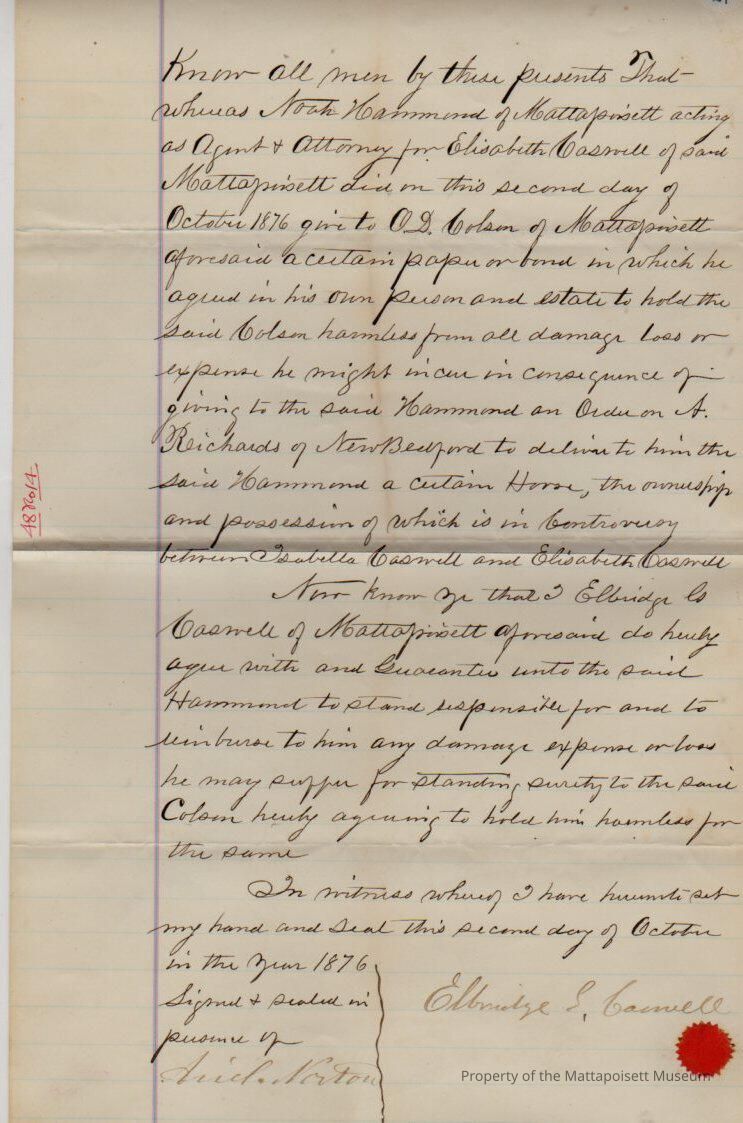 Know all men by these presents That
whereas Noah Hammond of Mattapoisett acting
as Agent & Attorney for Elisabeth Caswell of said
Mattapoisett did on this second day of
October 1876 give to O.D. Colson of Mattapoisett
aforesaid a certain paper or bond in which he
agreed in his own person and estate to hold the
said Colson harmless from all damage loss or
expense he might incur in consequence of
giving to the said Hammond an Order on A.
Richards of New Bedford to deliver to him the
said Hammond a certain Horse, the ownership
and possession of which is in Controversy
between Isabella Caswell and Elisabeth Caswell
Now know ye that I Elbridge G
Caswell of Mattapoisett aforesaid do hereby
agree with and Guarantee unto the said
Hammond to stand responsible for and to
reimburse to him any damage expense or loss
he may suffer for standing surety to the said
Colson hereby agreeing to hold him harmless for
the same
In witness whereof I have hereunto set
my hand and Seal this second day of October
in the Year 1876
Signed & sealed in
presence of
Elbridge G. Caswell
Norton
Property of the Mattapoisett Museum